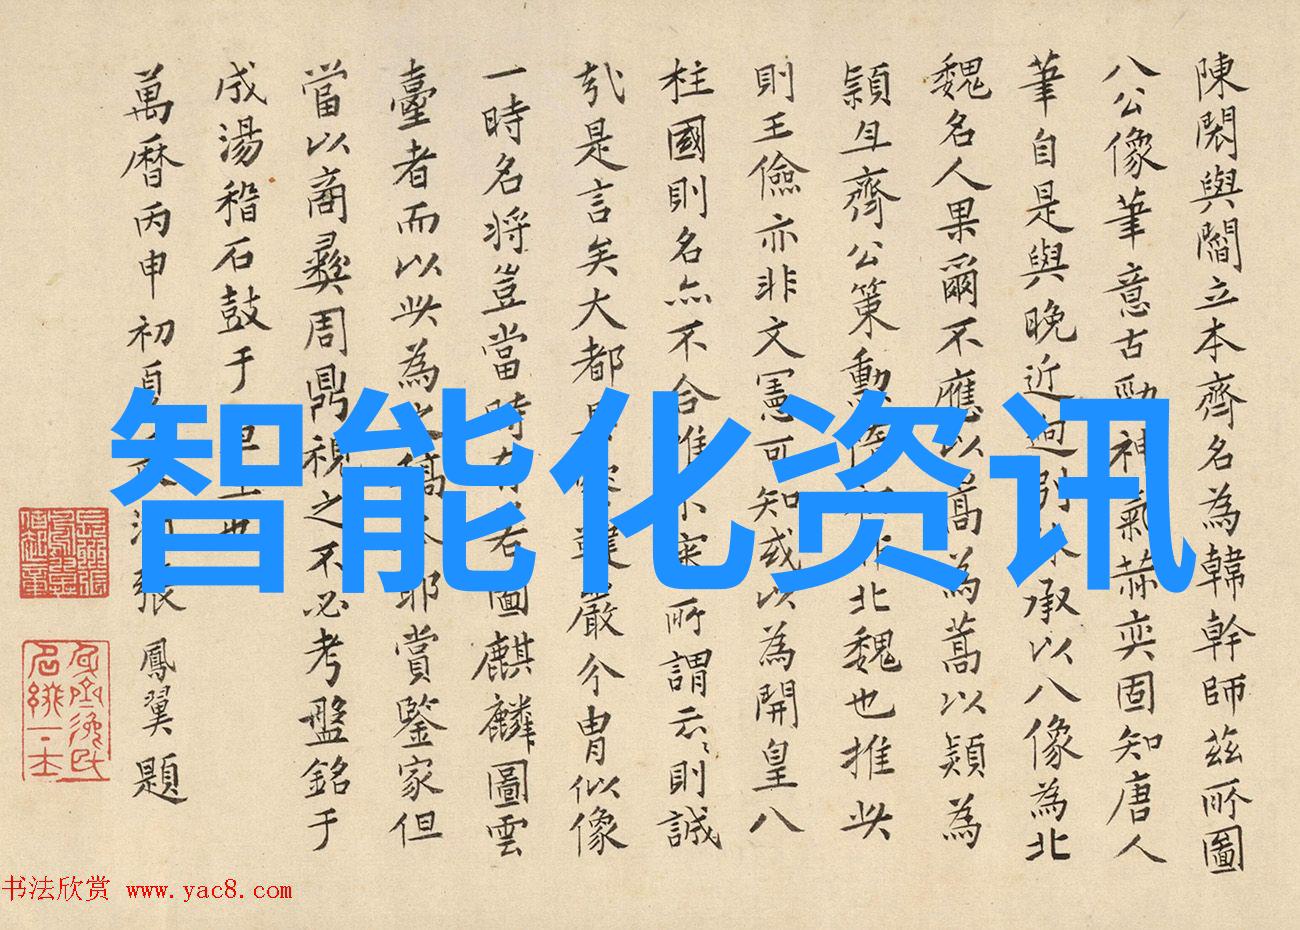 陳閎與閻立本齊名為韓幹師茲所圖
八公像筆意古勁神氣赫奕固知唐人
筆自是與晚近迥別 承以八像為北
魏名人果爾不應以蒿為蒿以頴為
頴且齊公策勳 北魏也推此
則王儉亦非文憲可知或以為開皇八
柱國則名亦不合惟 宋所謂云云則誠
哉是言矣大都 嚴介冑似像
一時名将豈當時有若圖麒麟圖雲
臺者而以此為之稿本耶賞鑒家但
當以商彝周鼎視之不必考盤銘于
成湯稽石鼓于 也
萬曆丙申初夏 張鳳翼題
智能化资讯
书法欣赏 www.yac8.com